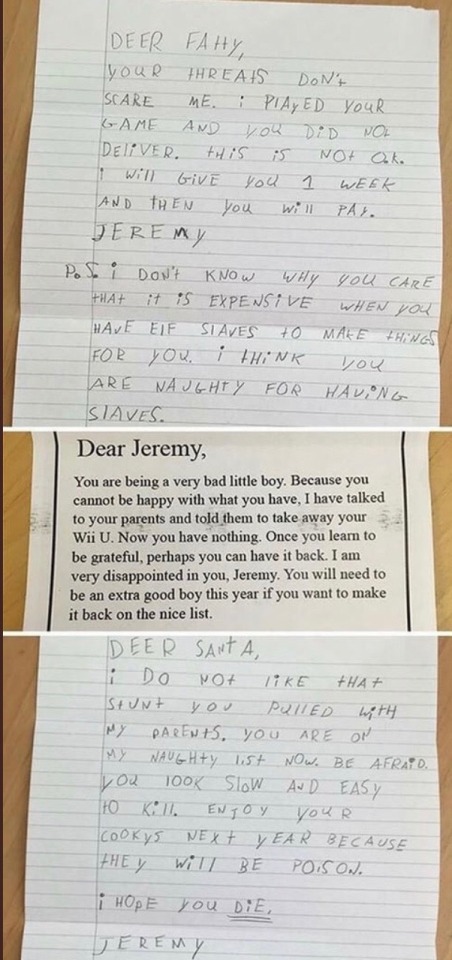 DEER FATTY,
YOUR THREATS DON't
SCARE ME. i PLAYED YOUR
GAME AND YOU DiD NOt
DELiVER. tHiS iS NOt O.k.
I Will GiVE YOU 1 WEEK
AND tHEN YOU Will PAY.
JEREMY
P.S. i DON't KNOW WHY YOU CARE
tHAt it iS EXPENSiVE WHEN YOU
HAVE ElF SlAVES tO MAkE tHiNGS
FOR YOU. i tHiNK YOU
ARE NAUGHtY FOR HAViNG
SlAVES.
Dear Jeremy,
You are being a very bad little boy. Because you
cannot be happy with what you have, I have talked
to your parents and told them to take away your
Wii U. Now you have nothing. Once you learn to
be grateful, perhaps you can have it back. I am
very disappointed in you, Jeremy. You will need to
be an extra good boy this year if you want to make
it back on the nice list.
DEER SANtA,
i DO NOt liKE tHAt
StUNt YOU PUllED WitH
MY PARENtS. YOU ARE ON
MY NAUGHtY liSt NOW. BE AFRAiD.
YOU lOOK SlOW AND EASY
tO Kill. ENJOY YOUR
COOKYS NEXt YEAR BECAUSE
tHEY Will BE POiSON.
i HOPE YOU DiE.
JEREMY